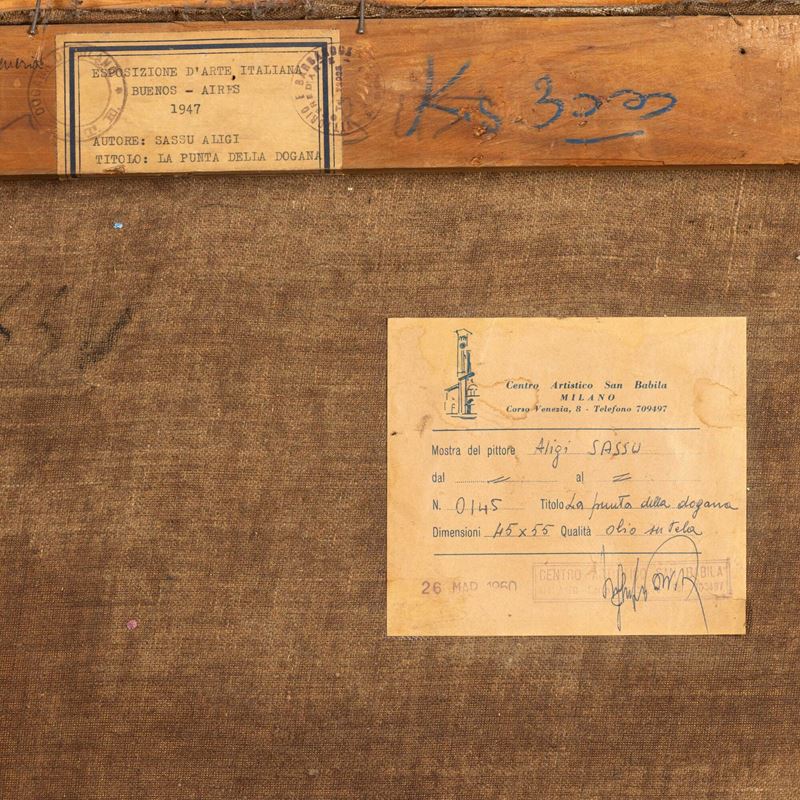 ESPOSIZIONE D'ARTE ITALIANA
BUENOS - AIRES
1947
AUTORE: SASSU ALIGI
TITOLO: LA PUNTA DELLA DOGANA
Centro Artistico San Babila
MILANO
Corso Venezia, 8 - Telefono 709497
Mostra del pittore Aligi SASSU
dal = al =
N. 0145 Titolo La punta della dogana
Dimensioni 45x55 Qualità olio su tela
26 MAR 1960